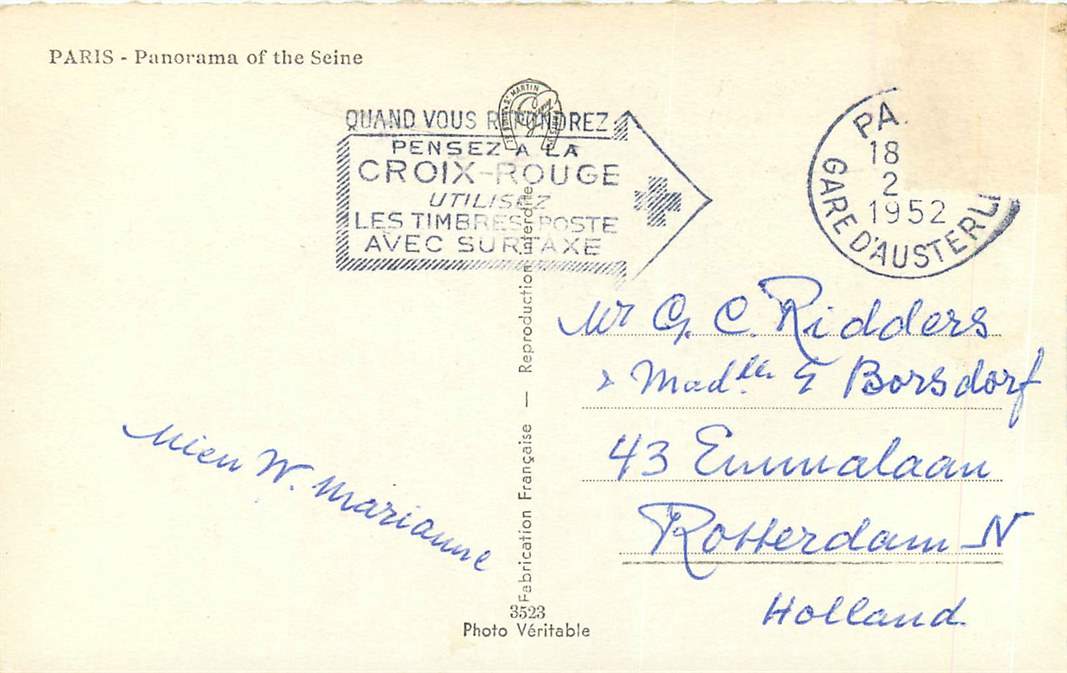 PARIS - Panorama of the Seine
ST MARTIN
QUAND VOUS REPONDREZ
PENSEZ A LA
CROIX-ROUGE
UTILISEZ
LES TIMBRES-POSTE
AVEC SURTAXE
PA
18
2
1952
GARE D'AUSTERLI
Mr G. C. Ridders
& Madlle E Borsdorf
43 Emmalaan
Rotterdam N
Holland
Mien W. Marianne
Fabrication Française — Reproduction interdite
3523
Photo Véritable